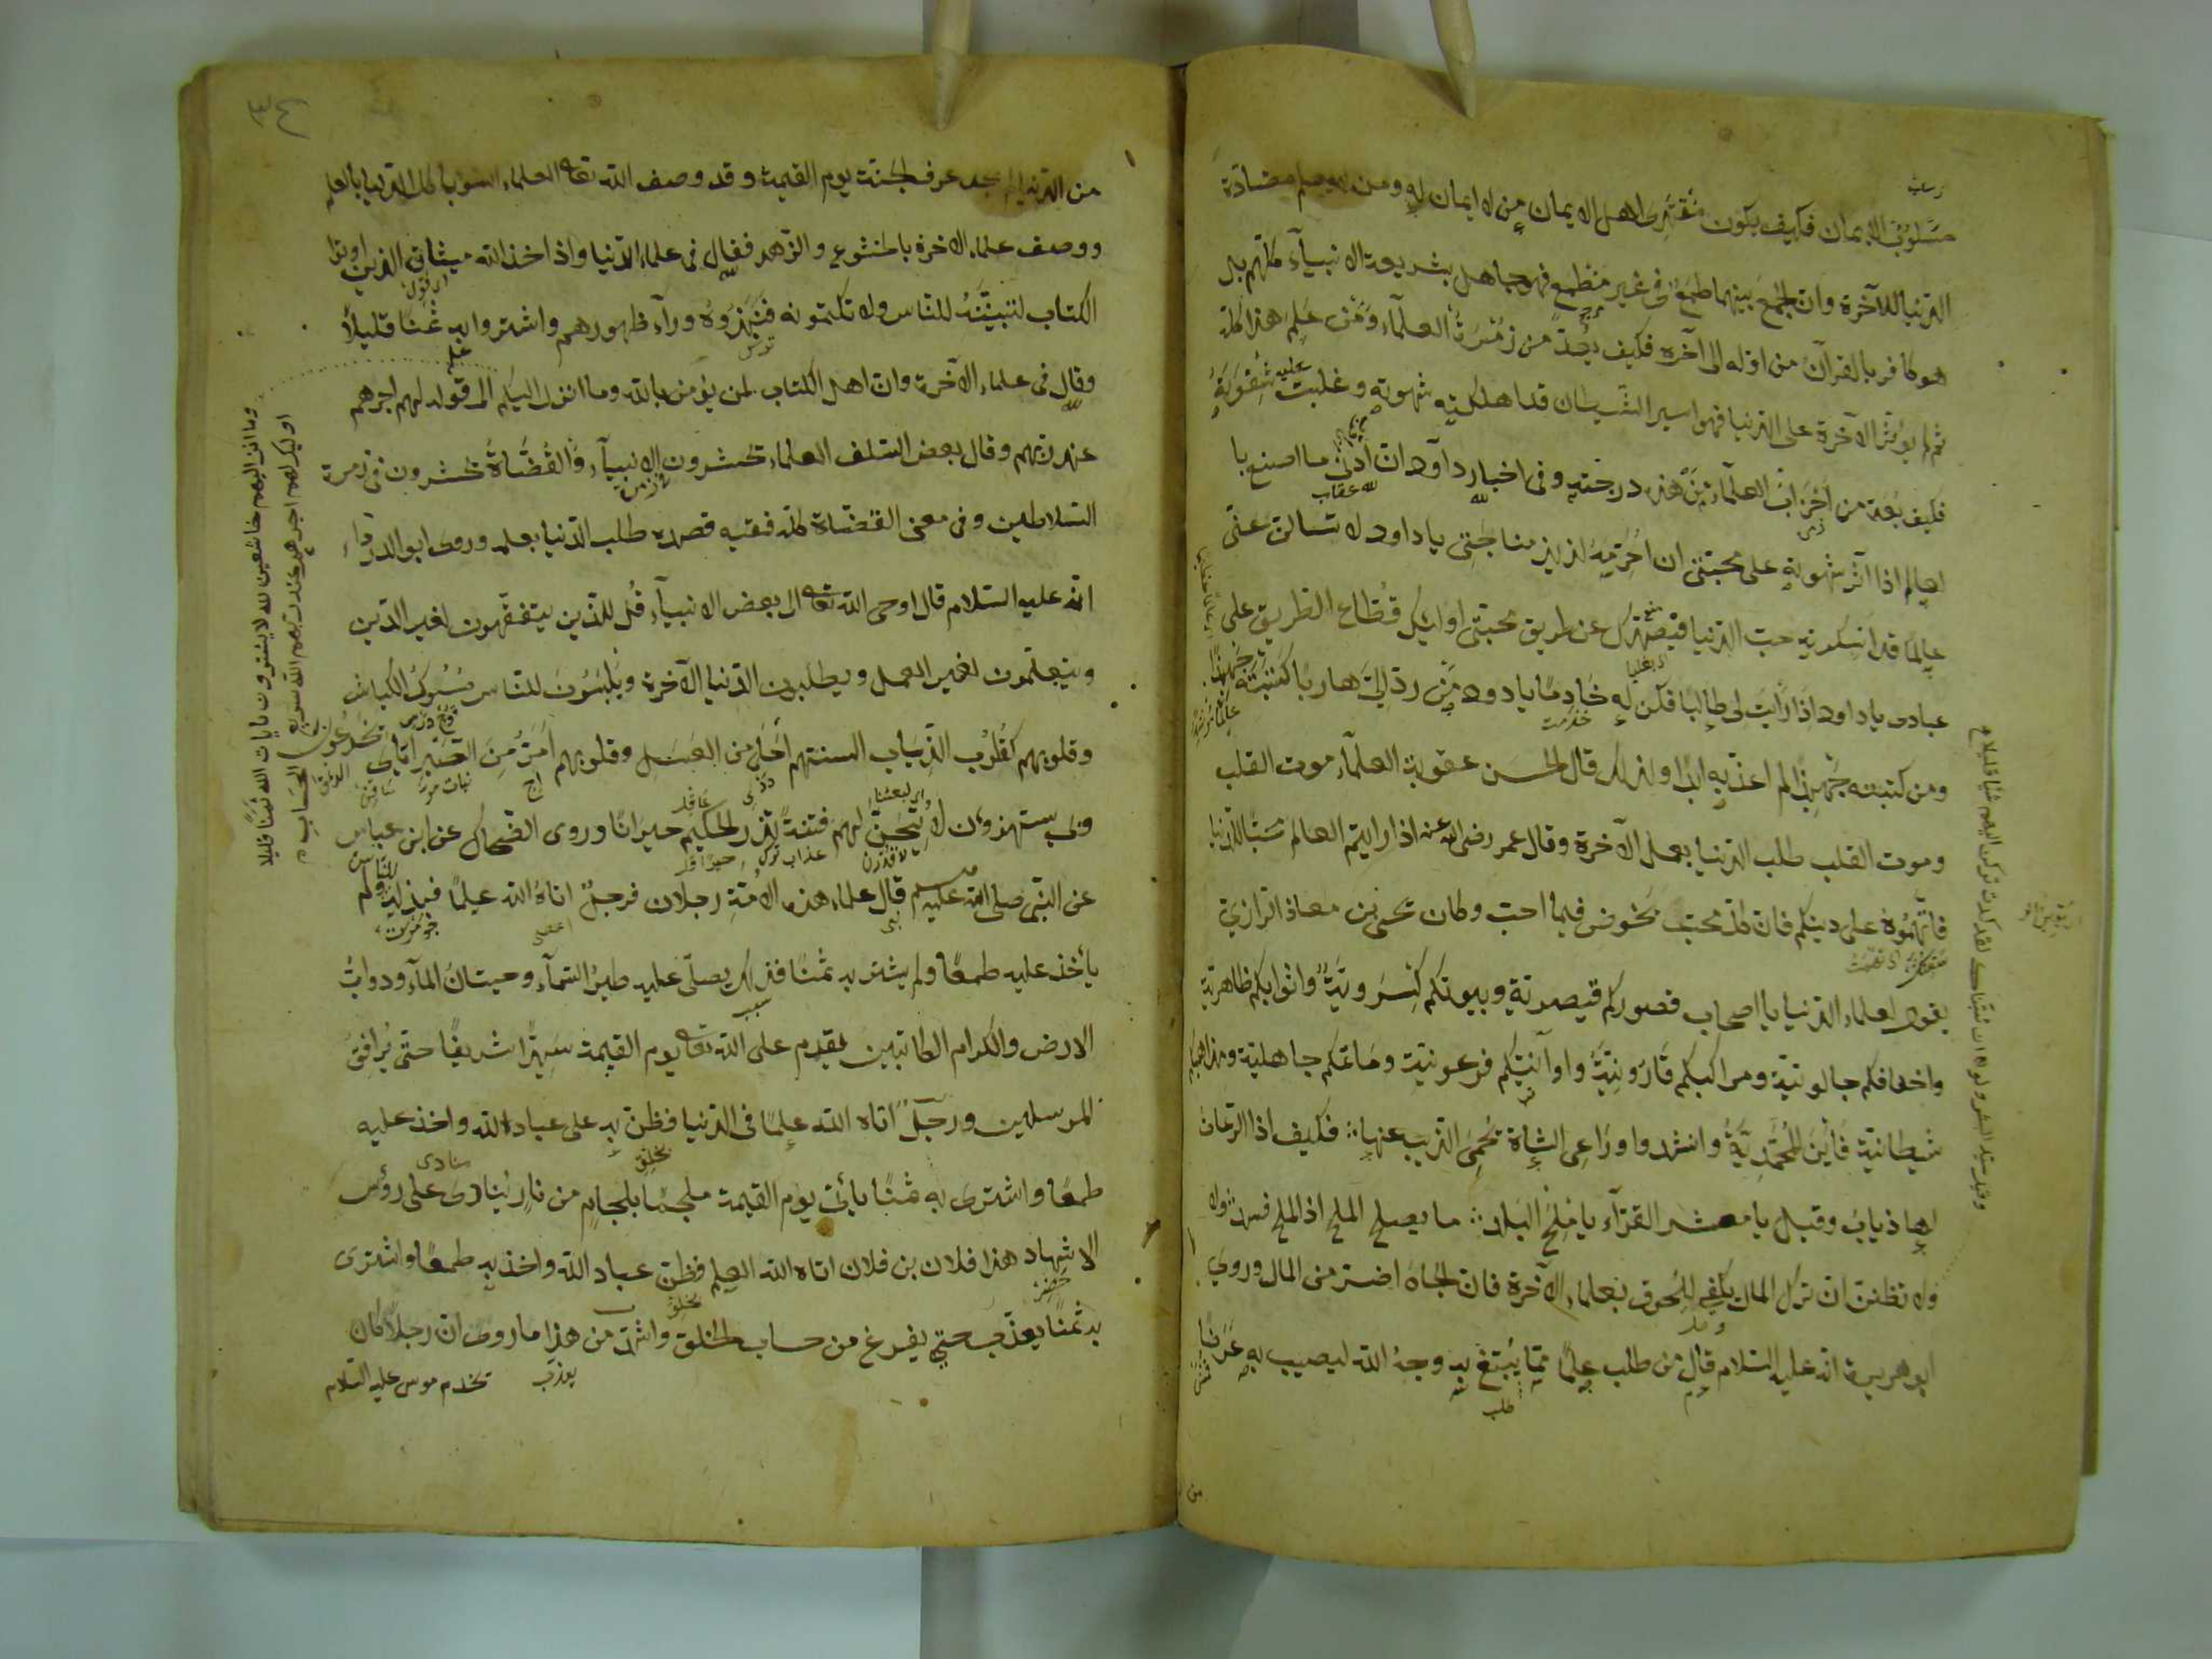 مسلوب الايمان فكيف يكون مقتدى لاهل الايمان من لا ايمان له ومن لا يعلم مضادة
الدنيا للآخرة وان الجمع بينهما طمع فى غير مطمع فهو جاهل بشريعة الانبيآء كلهم بل
هو كافر بالقرآن من اوله الى آخره فكيف يعد من زمرة العلمآء ومن علم هذا كله
ثم لم يؤثر الآخرة على الدنيا فهو اسير الشيطان قد اهلكته شهوته وغلبت عليه شقوته
فكيف يعد من احزاب العلمآء من هذه درجته وفى اخبار داود ان ادنى ما اصنع با
لعالم اذا آثر شهوته على محبتى ان احرمه لذيذ مناجتى يا داود لا تسالن عنى
عالما قد اسكرته حب الدنيا فيصدك عن طريق محبتى اولئك قطاع الطريق على
عبادى يا داود اذا رايت لى طالبا فكن له خادما يا داود من رد الى هاربا كتبته جهبذا
ومن كتبته جهبذا لم اعذبه ابدا ولذلك قال الحسن عقوبة العلمآء موت القلب
وموت القلب طلب الدنيا بعمل الآخرة وقال عمر رضى الله عنه اذا رايتم العالم محبا للدنيا
فاتهموه على دينكم فان كل محب يخوض فيما احب وكان يحيى بن معاذ الرازى
يقول لعلماء الدنيا يا اصحاب قصوركم قيصرية وبيوتكم كسروية واثوابكم ظاهرية
واخفافكم جالوتية ومراكبكم قارونية واوانيكم فرعونية ومآتمكم جاهلية ومذاهبكم
شيطانية فاين المحمدية وانشدوا وراعى الشاة يحمى الذيب عنها ∴ فكيف اذا الرعات
لها ذياب وقيل يا معشر القرآء يا ملح البلد ∴ ما يصلح الملح اذا الملح فسد ∴
ولا تظنن ان ترك المال يكفى للحوق بعلماء الآخرة فان الجاه اضر من المال وروى
ابو هريرة انه عليه السلام قال من طلب علما مما يبتغى به وجه الله ليصيب به عرضا
من
٣٤
من الدنيا لم يجد عرف الجنة يوم القيمة وقد وصف الله تعالى العلماء السوء باكل الدنيا بالعلم
ووصف علماء الاخرة بالخشوع والزهد فقال فى علماء الدنيا واذ اخذ الله ميثاق الذين اوتوا
الكتاب لتبيننه للناس ولا تكتمونه فنبذوه ورآء ظهورهم واشتروا به ثمنا قليلا
وقال فى علماء الآخرة وان اهل الكتاب لمن يؤمن بالله وما انزل اليكم الى قوله لهم اجرهم
عند ربهم وقال بعض السلف العلماء تحشرون فى زمرة الانبيآء والقضاة تحشرون فى زمرة
السلاطين وفى معنى القضاة كل فقيه قصده طلب الدنيا بعلمه وروى ابو الدرداء
انه عليه السلام قال اوحى الله تعالى الى بعض الانبيآء قل للذين يتفقهون لغير الدين
ويتعلمون لغير العمل ويطلبون الدنيا بالآخرة ويلبسون للناس مسوك الكباش
وقلوبهم كقلوب الذياب السنتهم احلى من العسل وقلوبهم امر من الصبر اياى تخدعون
وبى يستهزؤن لاتيحن لهم فتنة تذر الحكيم حيرانا وروى الضحاك عن ابن عباس
عن النبى صلى الله عليه وسلم قال علماء هذه الامة رجلان فرجل اتاه الله علما فبذله للناس ولم
يأخذ عليه طمعا ولم يشتر به ثمنا فذلك يصلى عليه طير السمآء وحيتان المآء ودواب
الارض والكرام الكاتبين يقدم على الله تعالى يوم القيمة سيدا شريفا حتى يرافق
المرسلين ورجل اتاه الله علما فى الدنيا فظن به على عباد الله واخذ عليه
طمعا واشترى به ثمنا يأتى يوم القيمة ملجما بلجام من نار ينادى على رؤس
الاشهاد هذا فلان بن فلان اتاه الله العلم فظن عباد الله واخذ به طمعا واشترى
به ثمنا يعذب حتى يفرغ من حساب الخلق واشد من هذا ما روى ان رجلا كان
يخدم موسى عليه السلام
وما انزل اليهم خاشعين لله لا يشترون بايات الله ثمنا قليلا
اولئك لهم اجرهم عند ربهم ان الله سريع الحساب